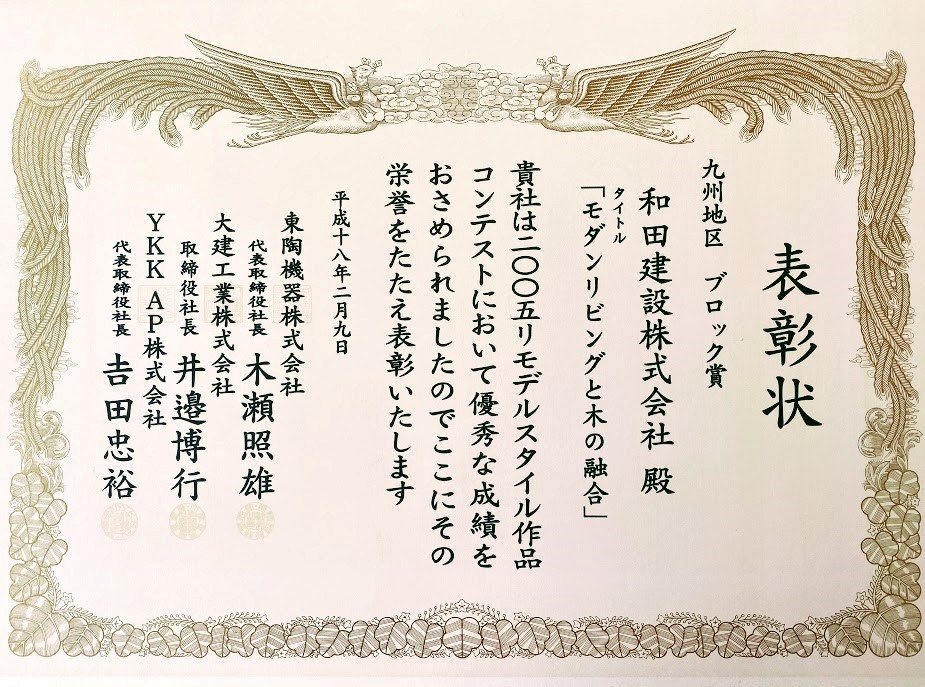 表彰状
九州地区 ブロック賞
和田建設株式会社 殿
タイトル
「モダンリビングと木の融合」
貴社は二〇〇五リモデルスタイル作品
コンテストにおいて優秀な成績を
おさめられましたのでここにその
栄誉をたたえ表彰いたします
平成十八年二月九日
東陶機器株式会社
代表取締役社長 木瀬照雄
大建工業株式会社
取締役社長 井邉博行
YKK AP株式会社
代表取締役社長 𠮷田忠裕